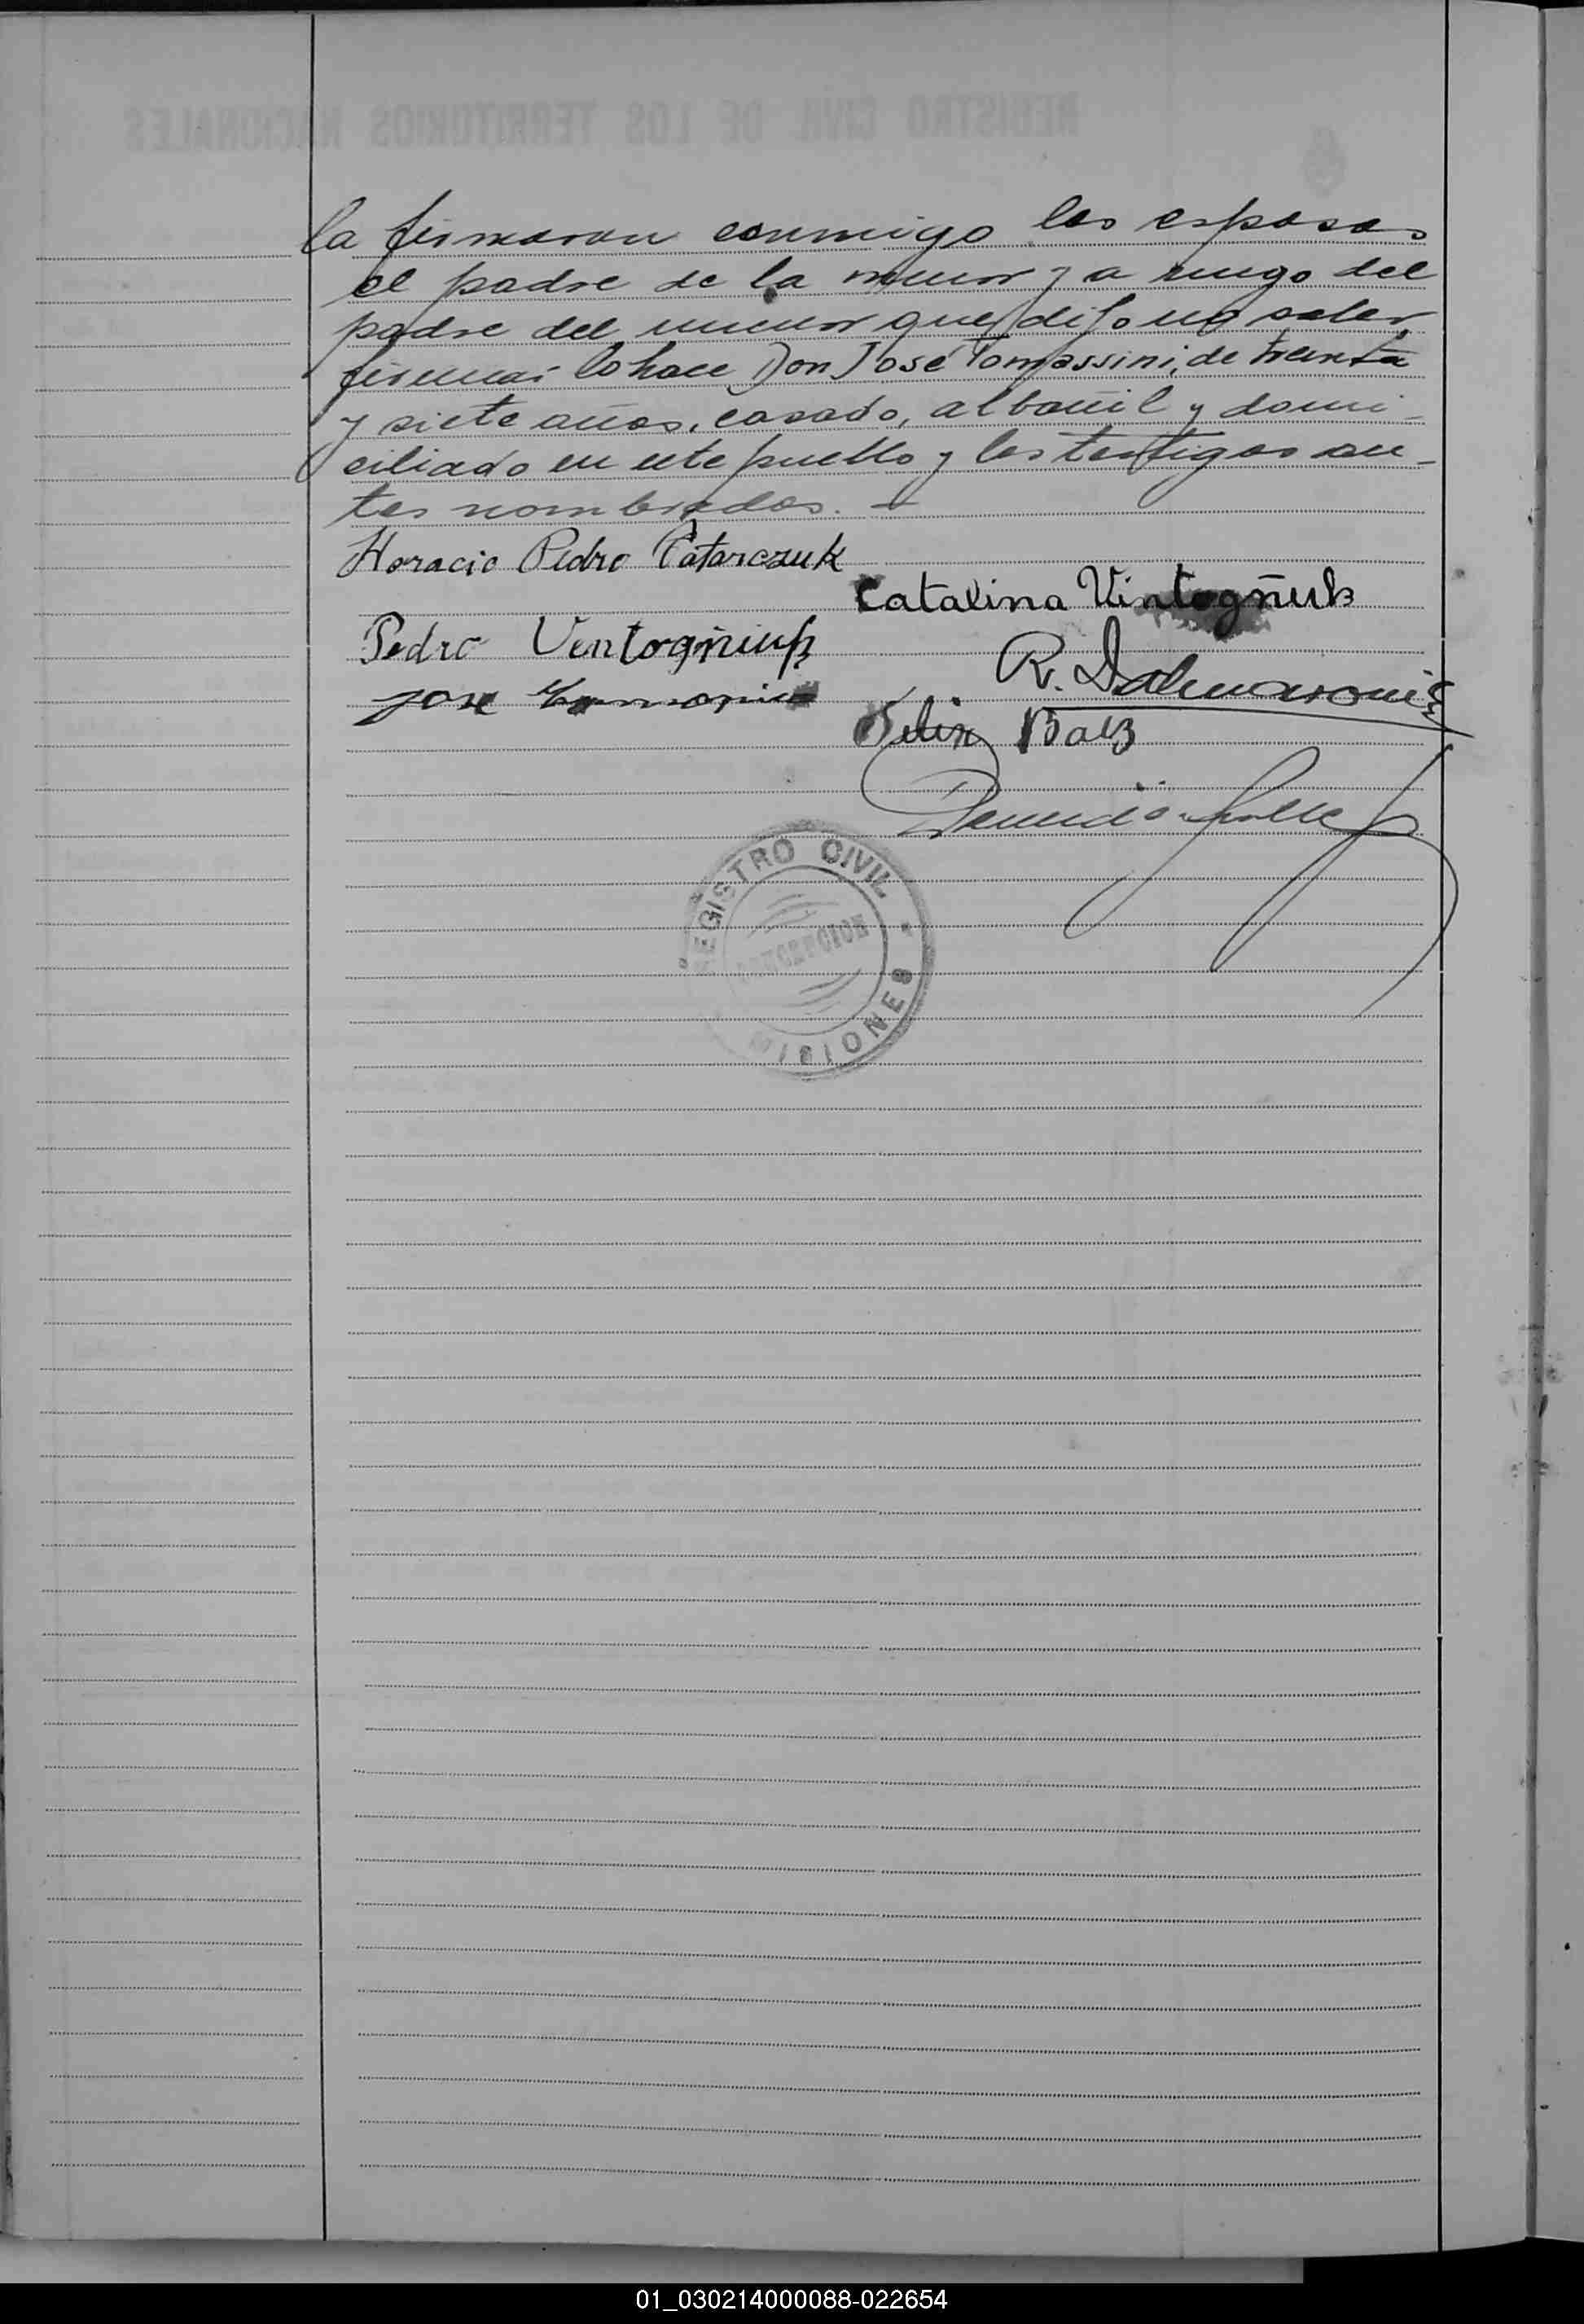 REGISTRO CIVIL DE LOS TERRITORIOS NACIONALES
la firmaron conmigo los esposos
el padre de la menor y a ruego del
padre del menor que dijo no saber
firmar lo hace Don José Tomassini, de treinta
y siete años, casado, albañil y domi-
ciliado en este pueblo y los testigos an-
tes nombrados. —
Horacio Pedro Patarczuk
Catalina Vintogñuk
Pedro Ventogñiuk
R. Dalmaroni
Jose
Felix Baez
REGISTRO CIVIL
CONCEPCION
MISIONES
01_030214000088-022654